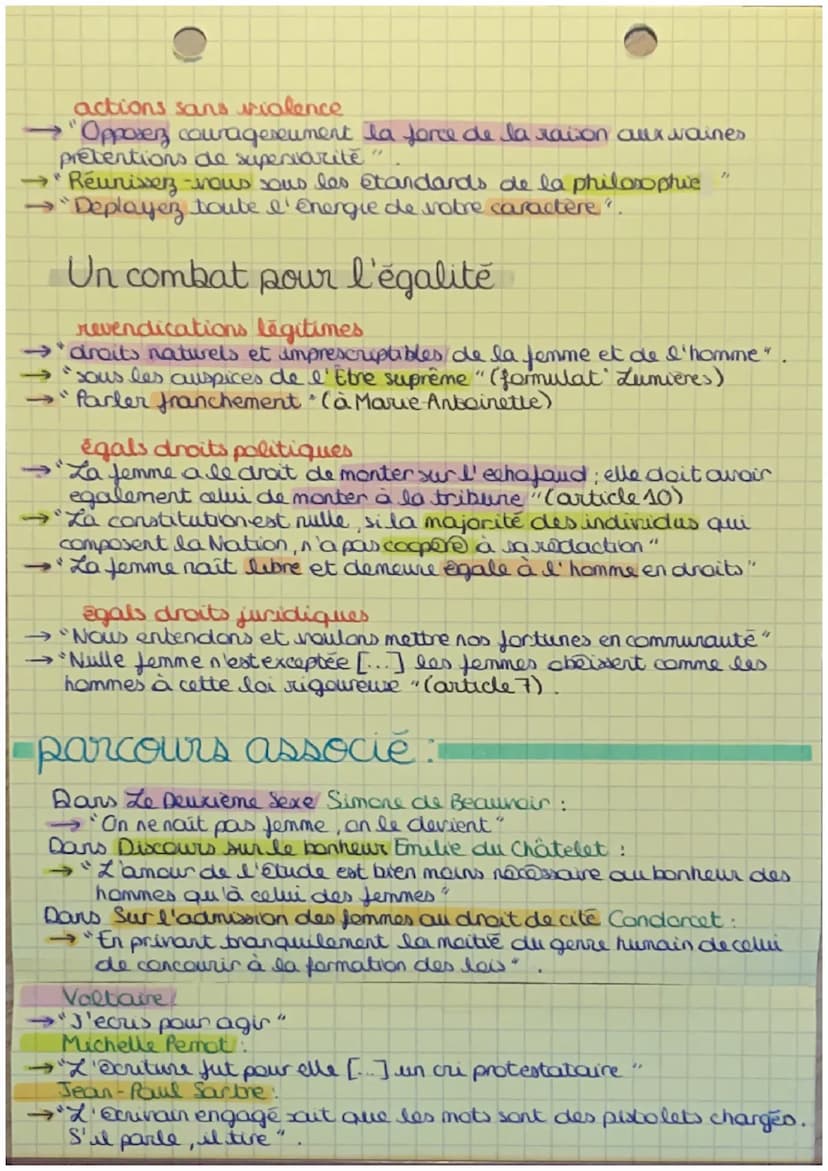 actions sans violence
→ "Opposez courageusement la force de la raison aux vaines
prétentions de supériorité".
→ "Réunissez-vous sous les étandards de la philosophie"
→ "Déployez toute l'énergie de votre caractère".
Un combat pour l'égalité
revendications légitimes
→ "droits naturels et imprescriptibles de la femme et de l'homme".
→ "sous les auspices de l'Être suprême" (formulat° Lumières)
→ "Parler franchement" (à Marie-Antoinette)
égals droits politiques
→ "La femme a le droit de monter sur l'echafaud ; elle doit avoir
egalement celui de monter à la tribune" (article 10)
→ "La constitution est nulle, si la majorité des individus qui
composent la Nation, n'a pas coopéré à sa rédaction"
→ "La femme naît libre et demeure égale à l'homme en droits"
égals droits juridiques
→ "Nous entendons et voulons mettre nos fortunes en communauté"
→ "Nulle femme n'est exceptée [...] les femmes obéissent comme les
hommes à cette loi rigoureuse" (article 7).
parcours associé :
Dans Le Deuxième Sexe Simone de Beauvoir :
→ "On ne naît pas femme, on le devient"
Dans Discours sur le bonheur Emilie du Châtelet :
→ "L'amour de l'étude est bien moins nécessaire au bonheur des
hommes qu'à celui des femmes"
Dans Sur l'admission des femmes au droit de cité Condorcet :
→ "En privant tranquilement la moitié du genre humain de celui
de concourir à la formation des lois".
Voltaire :
→ "J'écris pour agir"
Michelle Perrot :
→ "L'écriture fut pour elle [...] un cri protestataire"
Jean-Paul Sartre :
→ "L'écrivain engagé sait que les mots sont des pistolets chargés.
S'il parle, il tire".